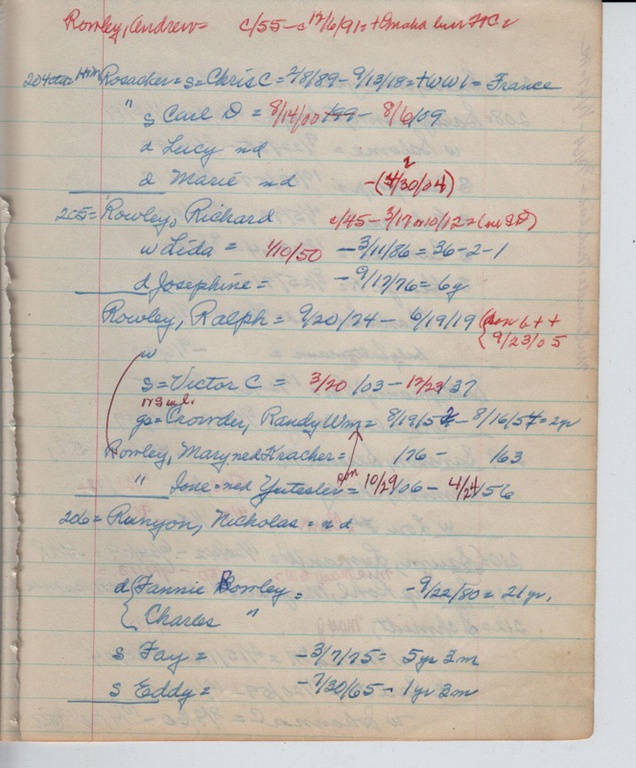 Rowley, Andrew = c/55 - c 12/6/91 = + Omaha
204 Rosacker = s = Chris C = 2/8/89 - 9/13/18 = + WW1 = France
" s Carl D = 8/14/00 +99 - 8/6/09
d Lucy nd
d Marie nd -(4/30/04)
205 = Rowley, Richard c/45 - 3/17 10/12 =
w Lida = 1/10/50 - 3/11/86 = 36-2-1
d Josephine = - 9/17/76 = 6y
Rowley, Ralph = 9/20/74 - 6/19/19
9/23/05
w
s = Victor C = 3/20/03 - 12/23/37
gs = Crowder, Randy Wm = 8/19/52 - 8/16/54 = 2yr
Rowley, Mary ned Kracher = /76 - /63
" Ione = ned = 10/29/06 - 4/24/56
206 = Runyon, Nicholas = nd
d Fannie Rowley = - 9/22/80 = 21 yr,
Charles "
s Fay = - 3/7/75 = 5 yr 2m
s Eddy = - 7/30/65 - 1 yr 2m